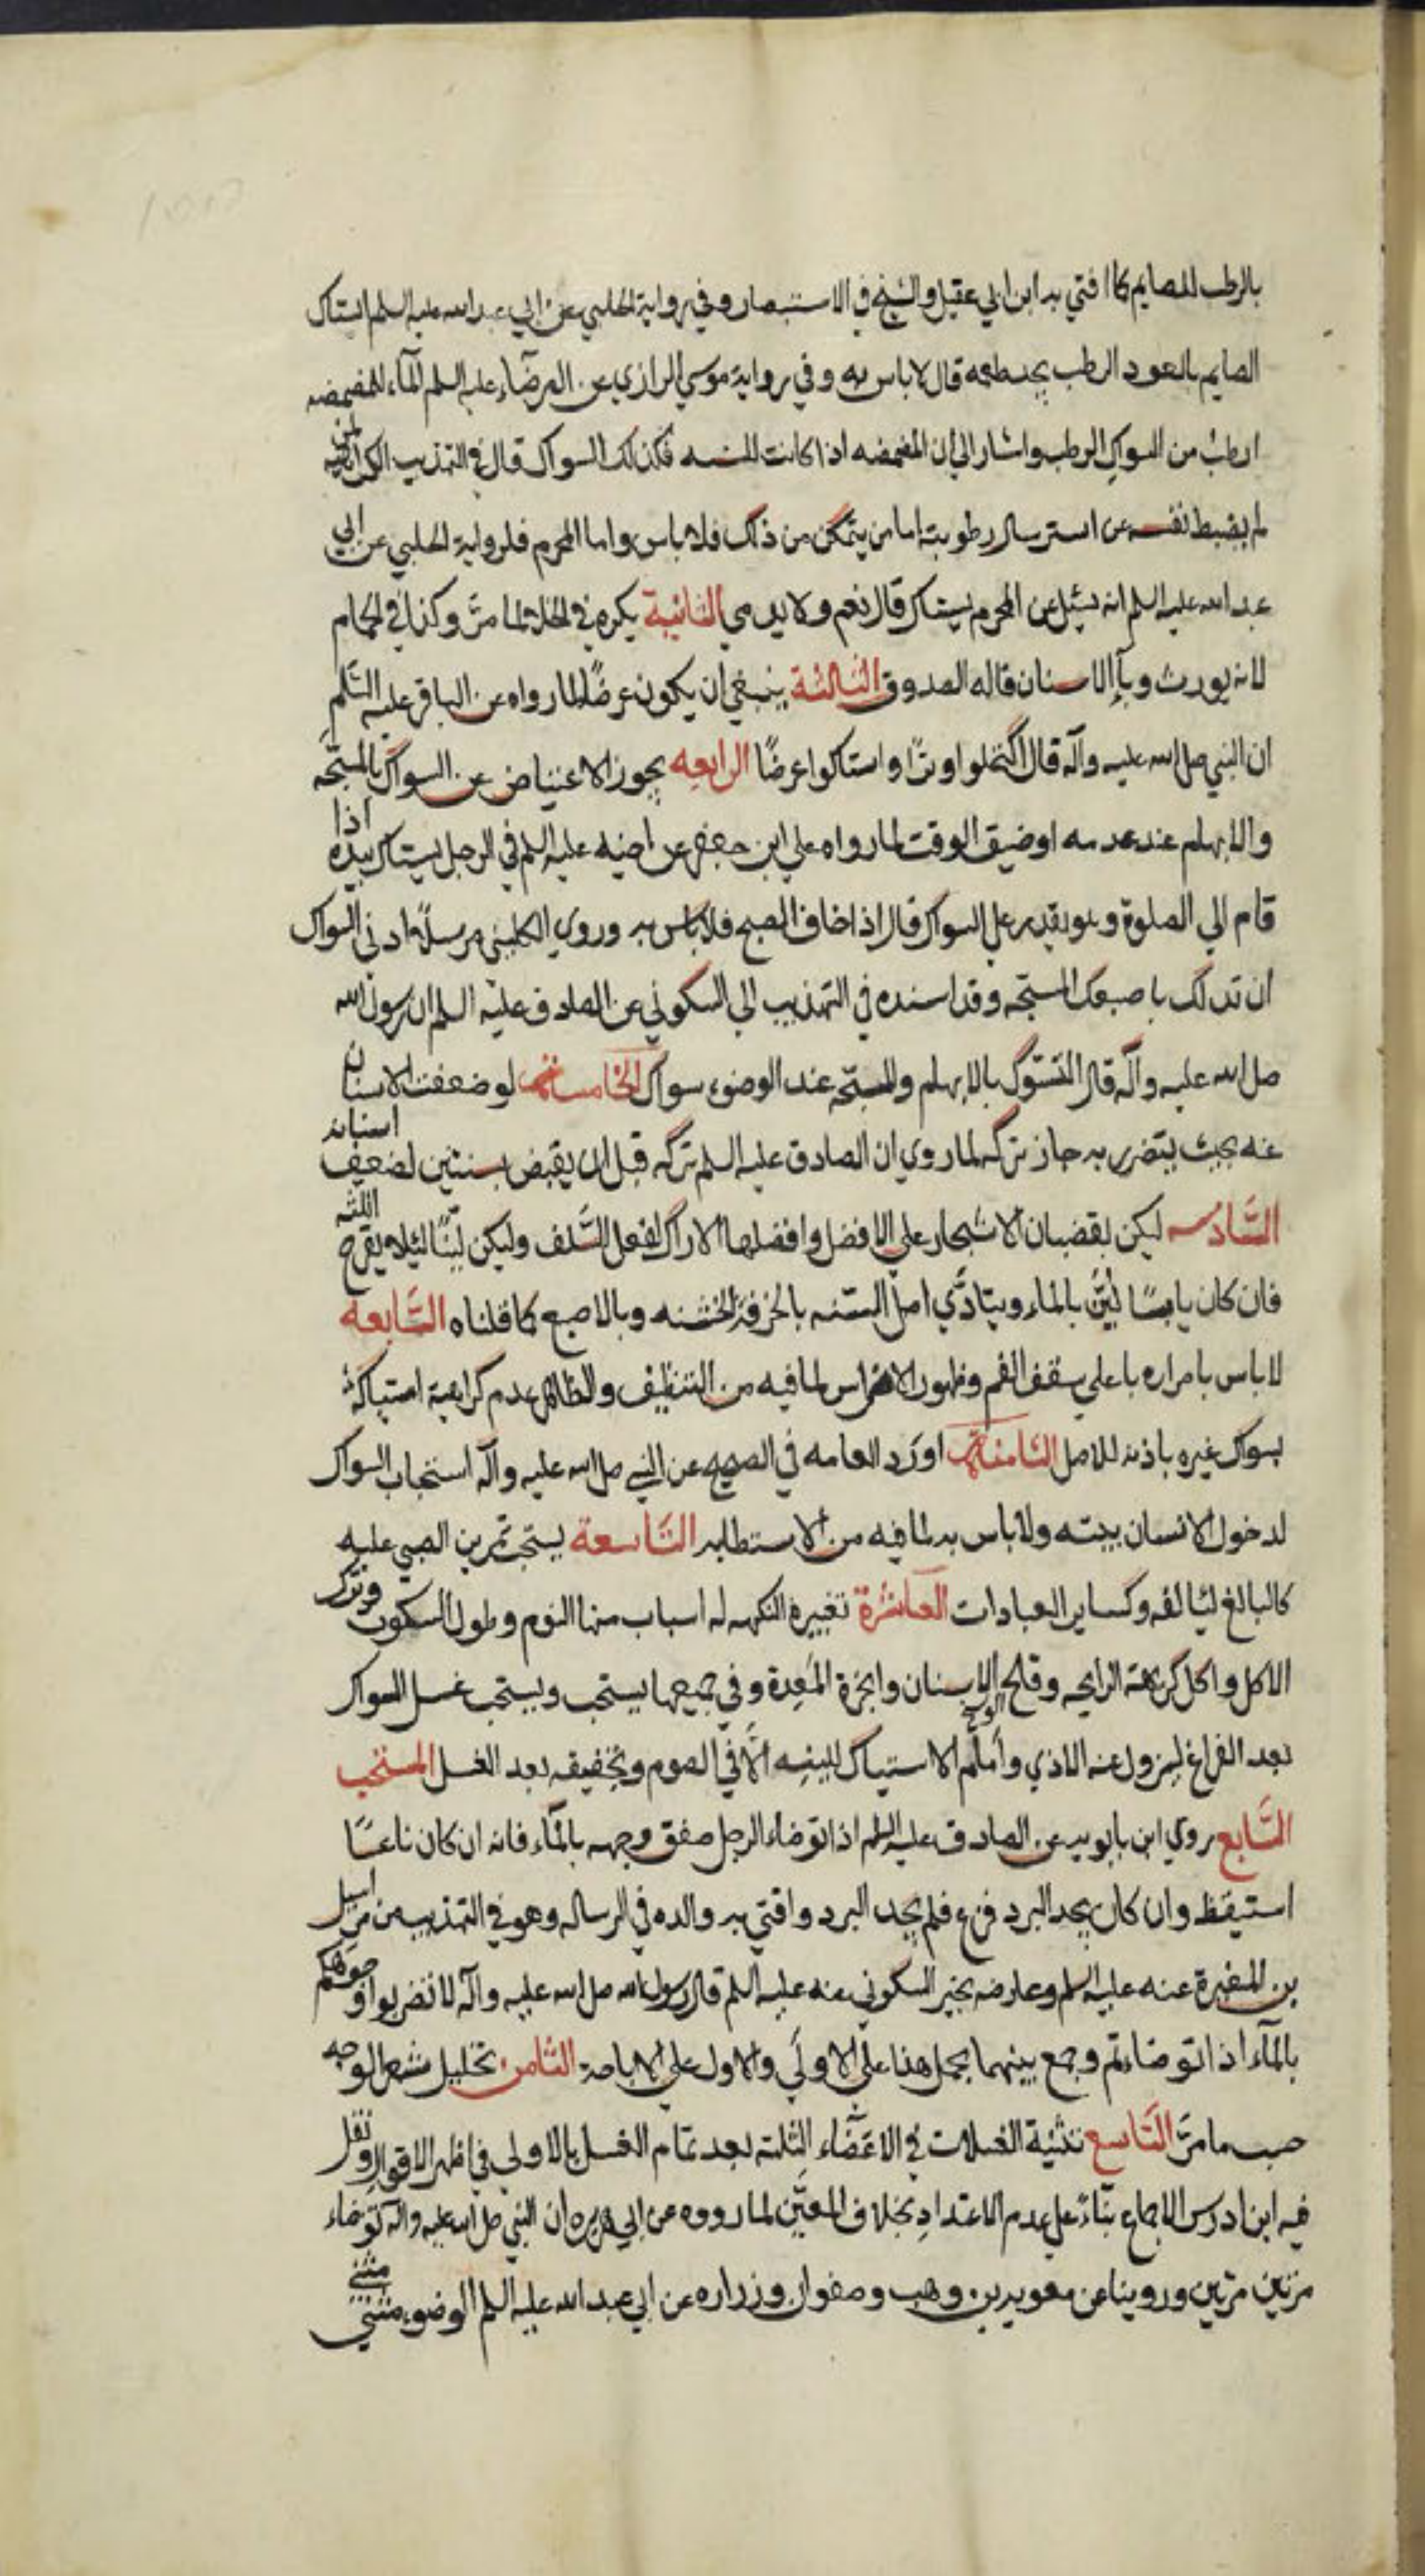 بالرطب للصايم كما افتي به ابن ابي عقيل والشيخ في الاستبصار وفي رواية الحلبي عن ابي عبد الله عليه السلم ايستاك
الصايم بالعود الرطب يجد طعمه قال لا باس به وفي رواية موسي الرازي عن الرضآء عليه السلم المآء للمضمضه
ارطب من السواك الرطب واشار الي ان المضمضه اذا كانت للسنه فكذلك السواك قال في التهذيب الكراهية لمن
لم يضبط نفسه عن استرسال رطوبته اما من يتمكن من ذلك فلا باس واما المحرم فلرواية الحلبي عن ابي
عبد الله عليه السلم انه سئل عن المحرم يستاك قال نعم ولا يدمي الثانية يكره في الخلا لما مرّ وكذا في الحمام
لانه يورث وبآ الاسنان قاله الصدوق الثالثة ينبغي ان يكون عرضًا لما رواه عن الباقر عليه السَّلم
ان النبي صل الله عليه وآله قال اكتحلوا وترًا واستاكوا عرضًا الرابعه يجوز الاعتياض عن السواك بالمسبّحه
والابهام عند عدمه او ضيق الوقت لما رواه علي ابن جعفر عن اخيه عليه السلم في الرجل يستاك بيده اذا
قام الي الصلوة وهو يقدر علي السواك قال اذا خاف الصبح فلا باس به وروي الكليني مرسلًا ادني السواك
ان تدلك باصبعك المسبّحه وقد اسنده في التهذيب الي السكوني عن الصادق عليه السلم ان رسول الله
صل الله عليه وآله قال التسوّك بالابهام والمسبّحه عند الوضوء سواك الخامسة لو ضعفت الاسنان
عنه بحيث يتضرر به جاز تركه لما روي ان الصادق عليه السلم تركه قبل ان يقبض بسنتين لضعف اسنانه
السَّادسه ليكن بقضبان الاشجار علي الافضل وافضلها الاراك لفعل السَّلف وليكن ليّنًا لئلا يقرح اللثه
فان كان يابسًا ليّن بالماء ويتادَّي اصل السنّه بالخرقة الخشنه وبالاصبع كما قلناه السَّابعه
لا باس بامراره باعلي سقف الفم وظهور الاضراس لما فيه من التنظيف والظاهر عدم كراهية استياكه
بسواك غيره باذنه للاصل الثامنة اورد العامه في الصحيح عن النبي صل الله عليه وآله استحباب السواك
لدخول الانسان بيته ولا باس به لما فيه من الاستطابه التاسعة يستحب تمرين الصبي عليه
كالبالغ ليالفه وكساير العبادات العاشرة تغيير النكهه له اسباب منها النوم وطول السكوت وترك
الاكل واكل كريهة الرايحه وقلح الاسنان وابخرة المَعِدة وفي جميعها يستحب ويستحب غسل السواك
بعد الفراغ ليزول عنه الاذي وامام الاستياك لليّنه الّا في الصوم وتخفيفه بعد الغسل المستحب
السَّابع روي ابن بابويه عن الصادق عليه السلم اذا توضاء الرجل صفق وجهه بالمآء فانه ان كان ناعسًا
استيقظ وان كان يجد البرد فزع فلم يجد البرد وافتي به والده في الرساله وهو في التهذيب من مراسيل
بن المغيرة عنه عليه السلم وعارضه بخبر السكوني عنه عليه السلم قال رسول الله صل الله عليه وآله لا تضربوا وجوهكم
بالمآء اذا توضاءتم وجمع بينهما بحمل هذا علي الاولَي والاول علي الاباحة الثامن تخليل شعر الوجه
حسب ما مرّ التاسع تثنية الغسلات في الاعضاء الثلثه بعد تمام الغسل بالاولي في اظهر الاقوال ونقل
فيه ابن ادريس الاجماع بنّاءً علي عدم الاعتدادِ بخلاف المعيّن لما رووه عن ابي هريره ان النبي صل الله عليه وآله توضاء
مرتين مرتين وروينا عن معويه بن وهب وصفوان وزراره عن ابي عبد الله عليه السلم الوضوء مثني مثني